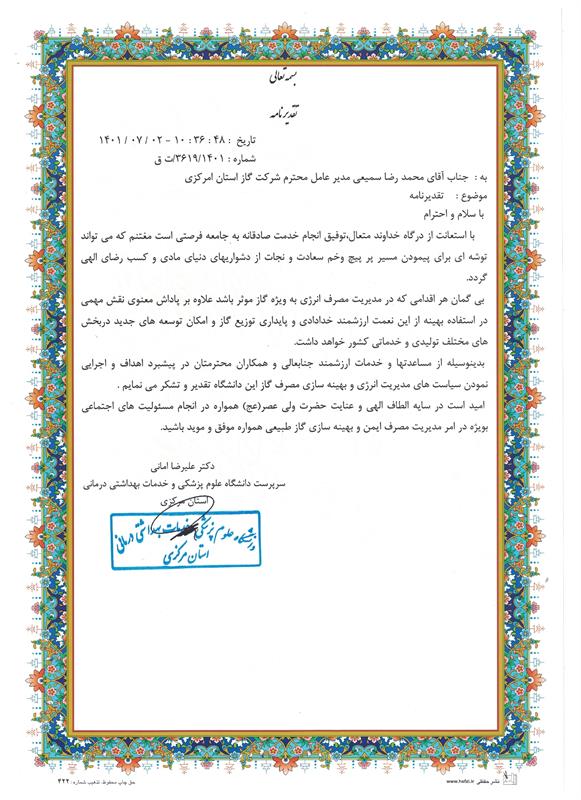 بسمه تعالی
تقدیرنامه
تاریخ : ۴۸ : ۳۶ : ۱۰ - ۰۲ / ۰۷ / ۱۴۰۱
شماره : ۳۶۱۹/۱۴۰۱/ت ق
به : جناب آقای محمد رضا سمیعی مدیر عامل محترم شرکت گاز استان امرکزی
موضوع : تقدیرنامه
با سلام و احترام
با استعانت از درگاه خداوند متعال،توفیق انجام خدمت صادقانه به جامعه فرصتی است مغتنم که می تواند
توشه ای برای پیمودن مسیر پر پیچ وخم سعادت و نجات از دشواریهای دنیای مادی و کسب رضای الهی
گردد.
بی گمان هر اقدامی که در مدیریت مصرف انرژی به ویژه گاز موثر باشد علاوه بر پاداش معنوی نقش مهمی
در استفاده بهینه از این نعمت ارزشمند خدادادی و پایداری توزیع گاز و امکان توسعه های جدید دربخش
های مختلف تولیدی و خدماتی کشور خواهد داشت.
بدینوسیله از مساعدتها و خدمات ارزشمند جنابعالی و همکاران محترمتان در پیشبرد اهداف و اجرایی
نمودن سیاست های مدیریت انرژی و بهینه سازی مصرف گاز این دانشگاه تقدیر و تشکر می نمایم .
امید است در سایه الطاف الهی و عنایت حضرت ولی عصر(عج) همواره در انجام مسئولیت های اجتماعی
بویژه در امر مدیریت مصرف ایمن و بهینه سازی گاز طبیعی همواره موفق و موید باشید.
دکتر علیرضا امانی
سرپرست دانشگاه علوم پزشکی و خدمات بهداشتی درمانی
استان مرکزی
دانشگاه علوم پزشکی و خدمات بهداشتی درمانی
استان مرکزی
حق چاپ محفوظ، تذهیب شماره: ۴۲۲
www.hefzi.ir نشر حفظی